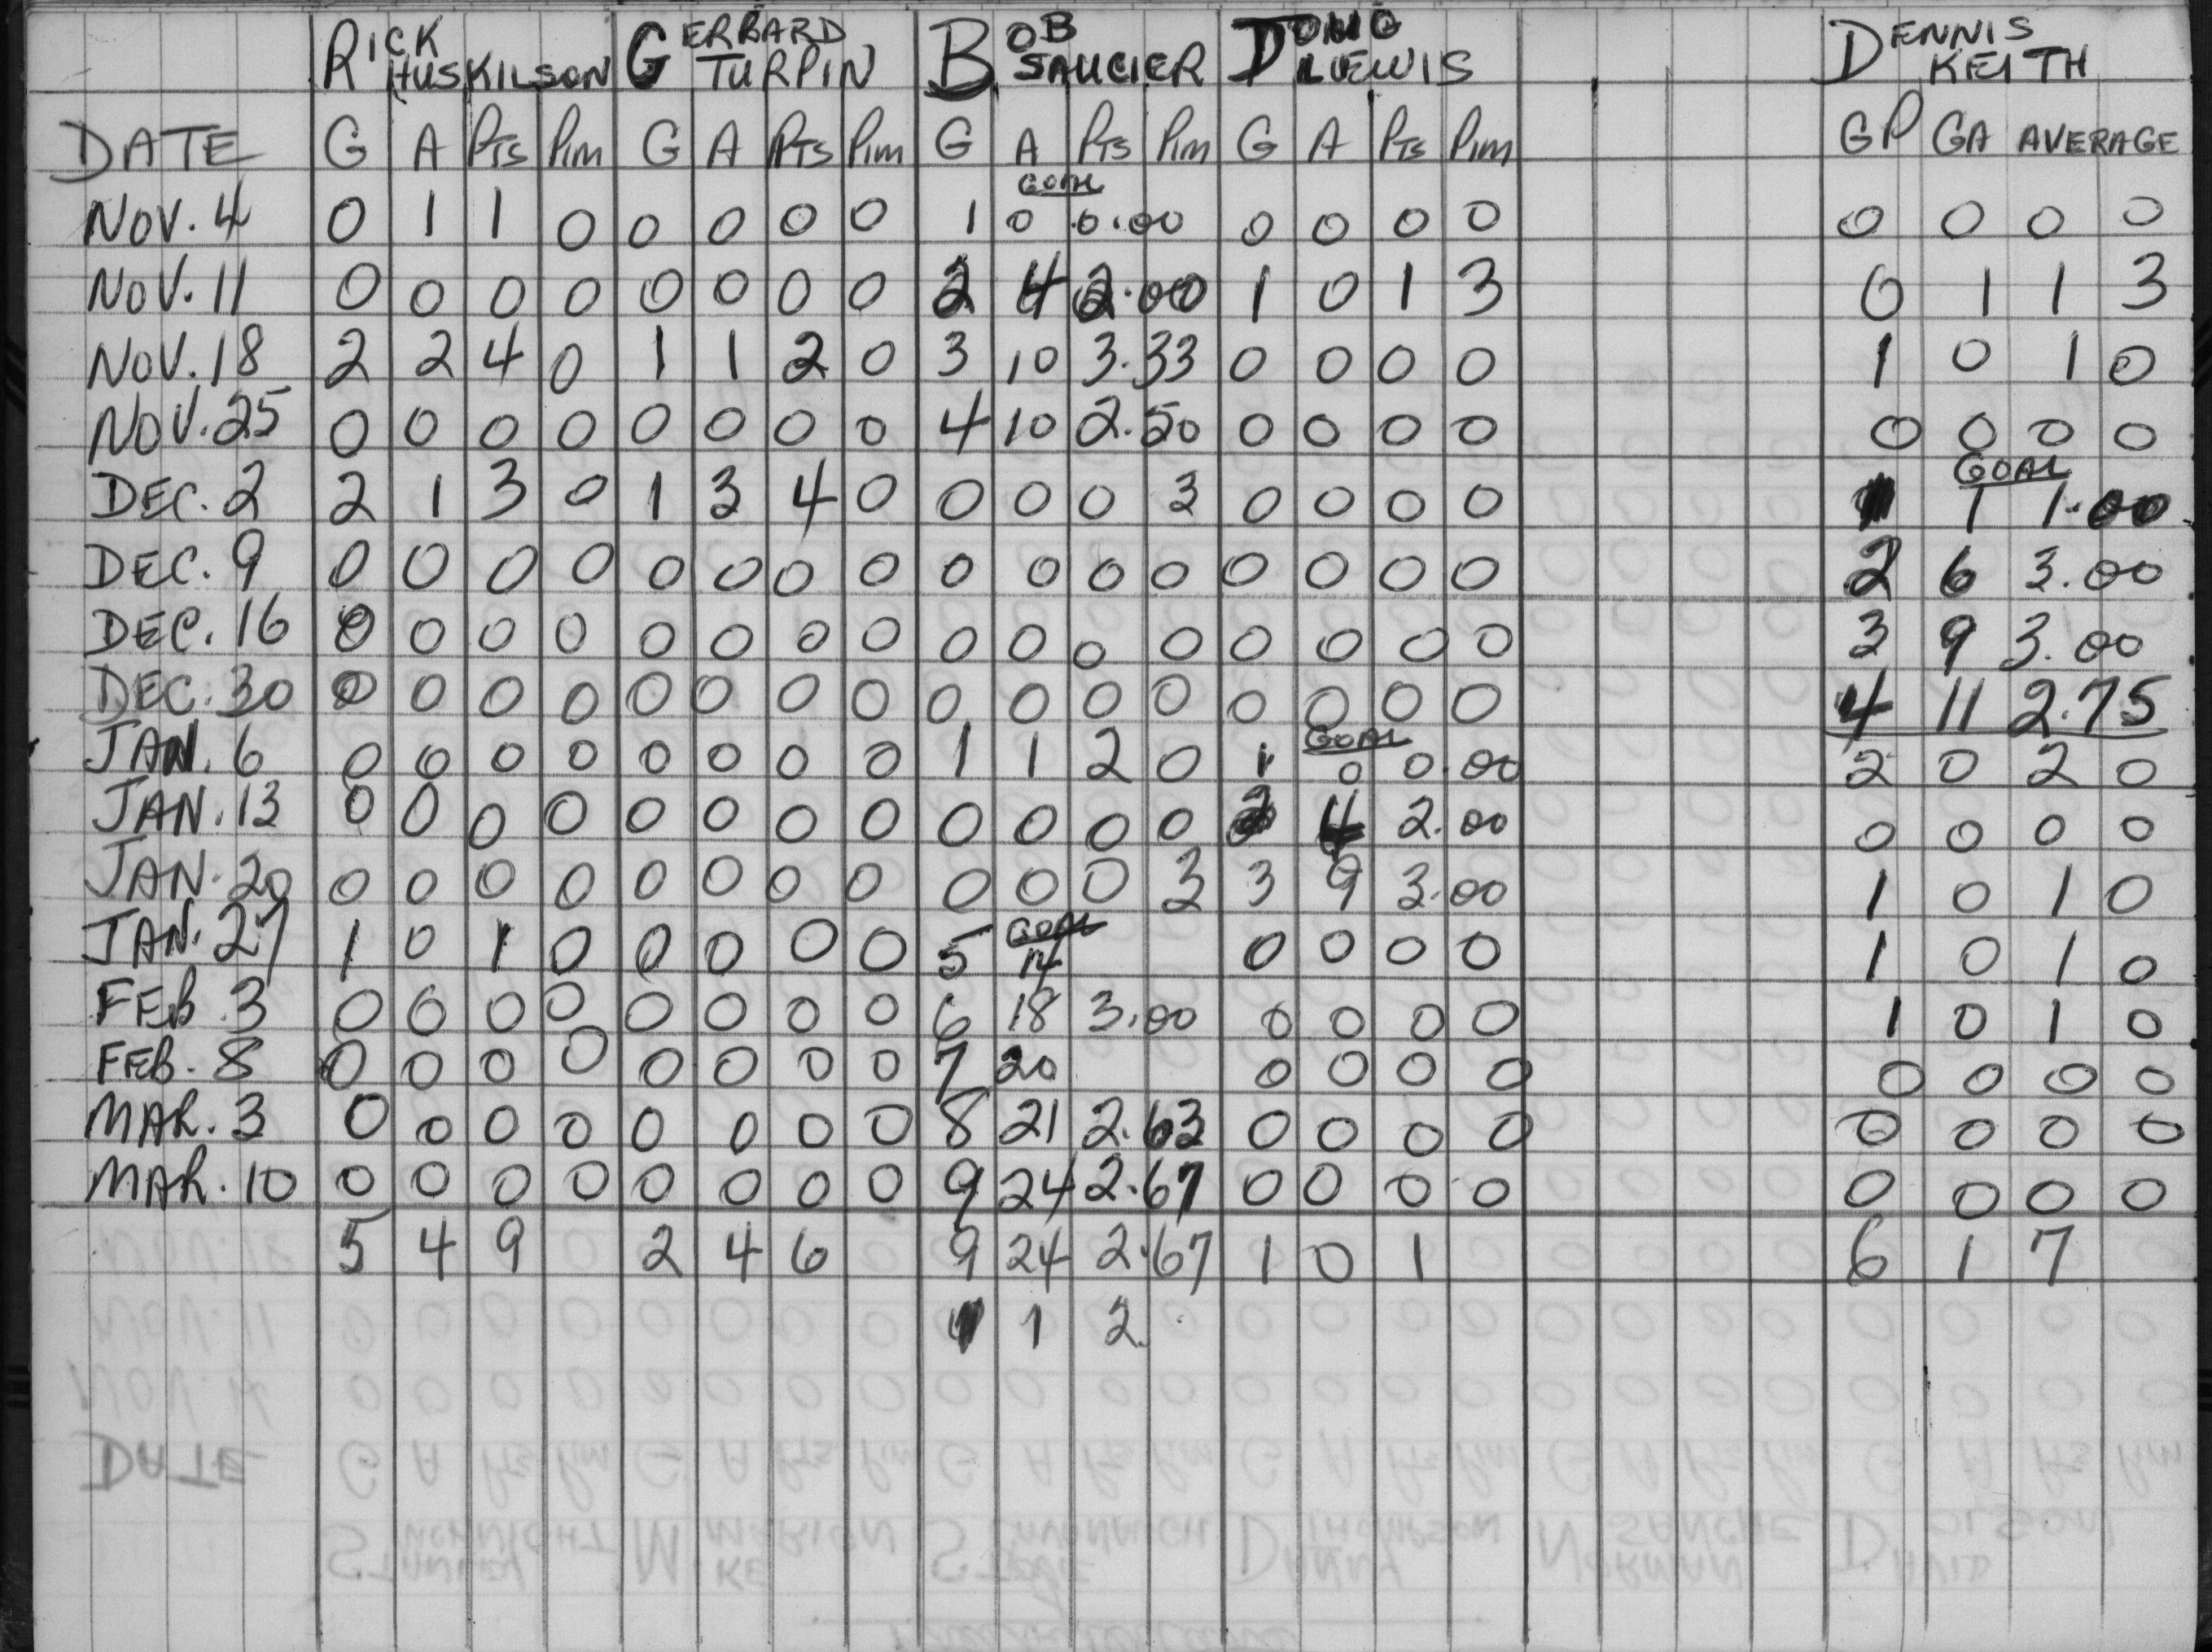 RICK HUSKILSON GERRARD TURPIN BOB SAUCIER DOUG LEWIS DENNIS KEITH
DATE G A PTS PIM G A PTS PIM G A PTS PIM G A PTS PIM GP GA AVERAGE
GOAL
NOV. 4 0 1 1 0 0 0 0 0 1 0 0.00 0 0 0 0 0 0 0 0
NOV. 11 0 0 0 0 0 0 0 0 2 4 2.00 1 0 1 3 0 1 1 3
NOV. 18 2 2 4 0 1 1 2 0 3 10 3.33 0 0 0 0 1 0 1 0
NOV. 25 0 0 0 0 0 0 0 0 4 10 2.50 0 0 0 0 0 0 0 0
GOAL
DEC. 2 2 1 3 0 1 3 4 0 0 0 0 3 0 0 0 0 1 1 1.00
DEC. 9 0 0 0 0 0 0 0 0 0 0 0 0 0 0 0 0 2 6 3.00
DEC. 16 0 0 0 0 0 0 0 0 0 0 0 0 0 0 0 0 3 9 3.00
DEC. 30 0 0 0 0 0 0 0 0 0 0 0 0 0 0 0 0 4 11 2.75
GOAL
JAN. 6 0 0 0 0 0 0 0 0 1 1 2 0 1 0 0.00 2 0 2 0
JAN. 13 0 0 0 0 0 0 0 0 0 0 0 0 2 4 2.00 0 0 0 0
JAN. 20 0 0 0 0 0 0 0 0 0 0 0 3 3 9 3.00 1 0 1 0
GOAL
JAN. 27 1 0 1 0 0 0 0 0 5 14 0 0 0 0 1 0 1 0
FEB. 3 0 0 0 0 0 0 0 0 6 18 3.00 0 0 0 0 1 0 1 0
FEB. 8 0 0 0 0 0 0 0 0 7 20 0 0 0 0 0 0 0 0
MAR. 3 0 0 0 0 0 0 0 0 8 21 2.63 0 0 0 0 0 0 0 0
MAR. 10 0 0 0 0 0 0 0 0 9 24 2.67 0 0 0 0 0 0 0 0
5 4 9 2 4 6 9 24 2.67 1 0 1 6 1 7
1 1 2